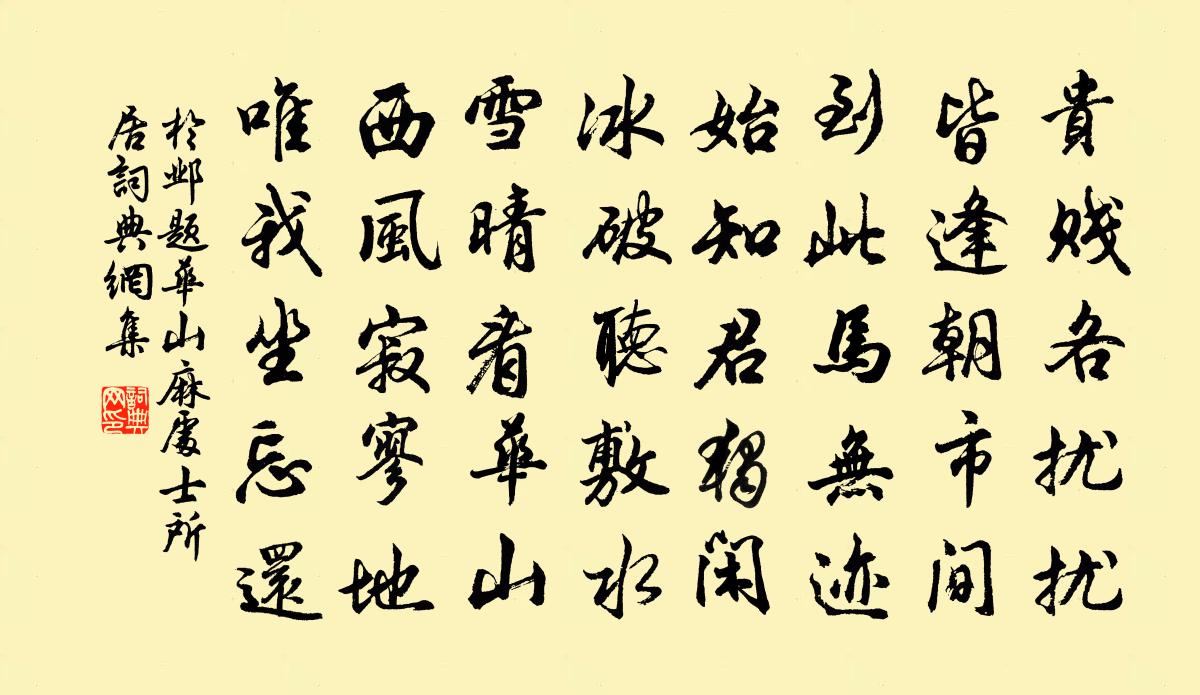 貴賤各扰扰
皆逢朝市間
到此馬無迹
始知君獨閑
冰破聽敷水
雪晴看華山
西風寂寥地
唯我坐忘還
於邺题華山麻處士所
居詞典網集
詞典网印